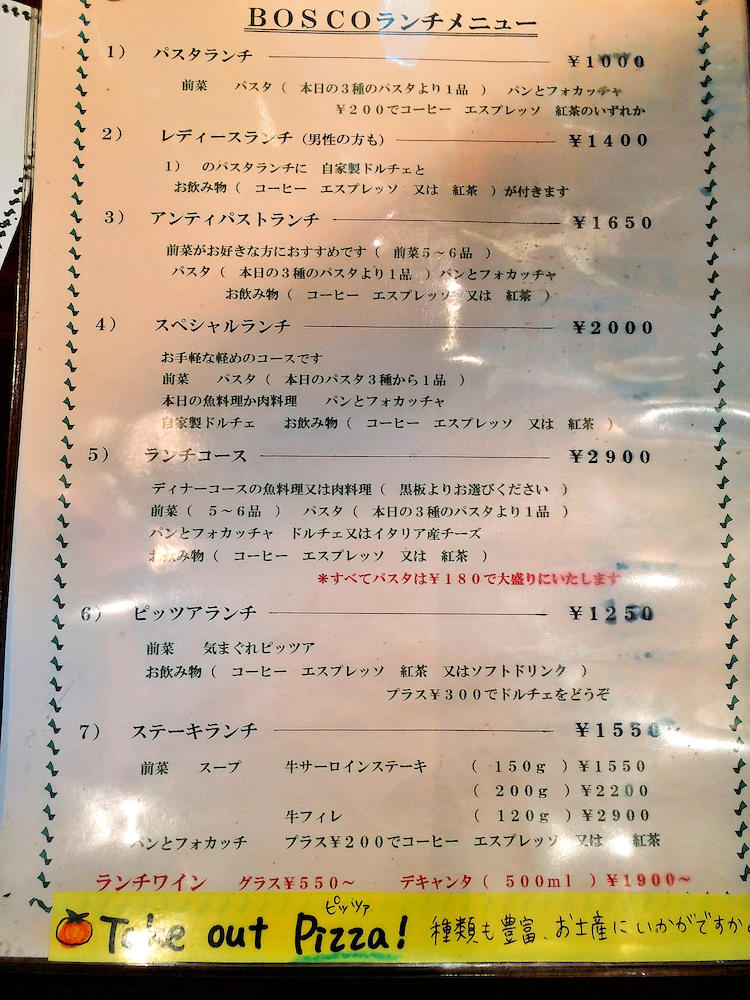 BOSCOランチメニュー
1) パスタランチ ¥1000
前菜 パスタ( 本日の3種のパスタより1品 ) パンとフォカッチャ
¥200でコーヒー エスプレッソ 紅茶のいずれか
2) レディースランチ(男性の方も) ¥1400
1) のパスタランチに 自家製ドルチェと
お飲み物( コーヒー エスプレッソ 又は 紅茶 )が付きます
3) アンティパストランチ ¥1650
前菜がお好きな方におすすめです( 前菜5~6品 )
パスタ( 本日の3種のパスタより1品 )パンとフォカッチャ
お飲み物( コーヒー エスプレッソ 又は 紅茶 )
4) スペシャルランチ ¥2000
お手軽な軽めのコースです
前菜 パスタ( 本日のパスタ3種から1品 )
本日の魚料理か肉料理 パンとフォカッチャ
自家製ドルチェ お飲み物( コーヒー エスプレッソ 又は 紅茶 )
5) ランチコース ¥2900
ディナーコースの魚料理又は肉料理( 黒板よりお選びください )
前菜( 5~6品 ) パスタ( 本日の3種のパスタより1品 )
パンとフォカッチャ ドルチェ又はイタリア産チーズ
お飲み物( コーヒー エスプレッソ 又は 紅茶 )
*すべてパスタは¥180で大盛りにいたします
6) ピッツアランチ ¥1250
前菜 気まぐれピッツア
お飲み物( コーヒー エスプレッソ 紅茶 又はソフトドリンク )
プラス¥300でドルチェをどうぞ
7) ステーキランチ ¥1550~
前菜 スープ 牛サーロインステーキ ( 150g )¥1550
( 200g )¥2200
牛フィレ ( 120g )¥2900
パンとフォカッチ プラス¥200でコーヒー エスプレッソ 又は 紅茶
ランチワイン グラス¥550~ デキャンタ( 500ml )¥1900~
ピッツァ
Take out Pizza! 種類も豊富、お土産にいかがですか